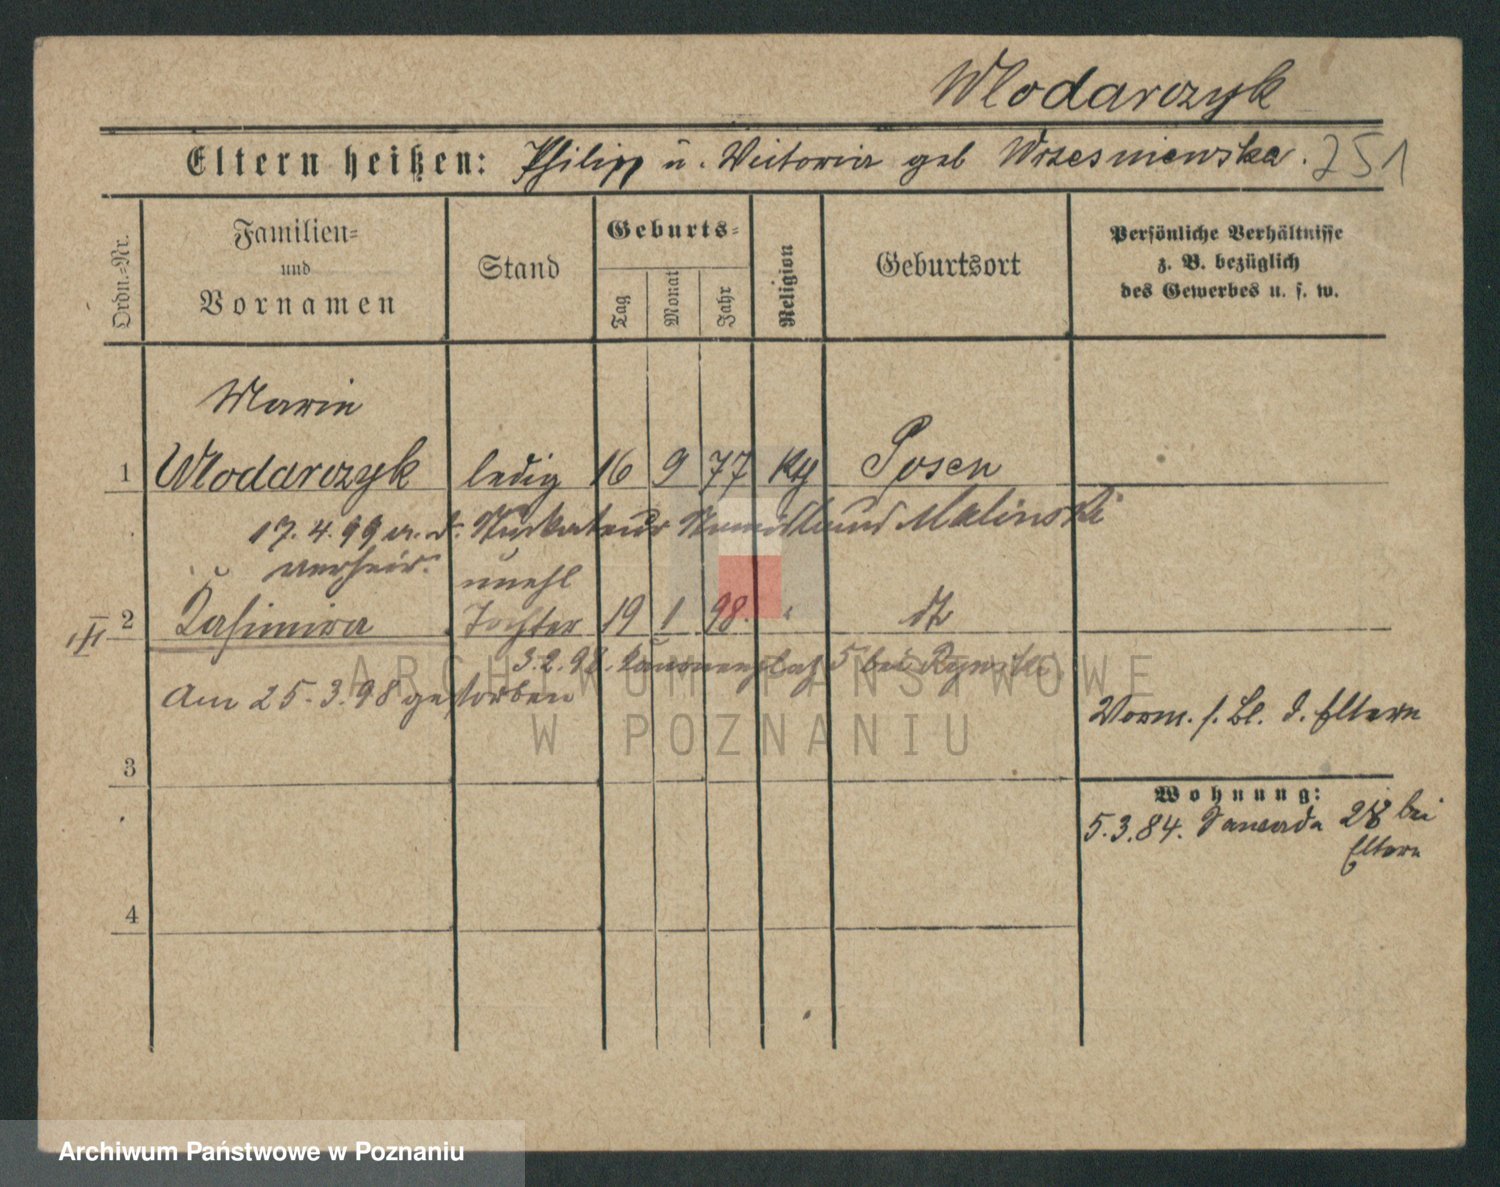 Wlodarczyk
Eltern heißen: Philipp u. Victoria geb Wrzesniewska. 251
Ordn.=Nr.
Familien= und Vornamen
Stand
Geburts=
Tag
Monat
Jahr
Religion
Geburtsort
Persönliche Verhältnisse
z. B. bezüglich
des Gewerbes u. s. w.
Marie
1 Wlodarczyk ledig 16 9 77 Kth Posen
17. 4. 99 a. d. Stuckateur Malinski
verheir.
unehl
III 2 Kasimira Tochter 19 1 98. " dt
3.2.98. Kanonenplatz 5 bei
Am 25.3.98 gestorben
Vorm. s. Bl. d. Eltern
3
Wohnung:
5.3.84. 28 bei
Eltern
4
ARCHIWUM PAŃSTWOWE
W POZNANIU
Archiwum Państwowe w Poznaniu